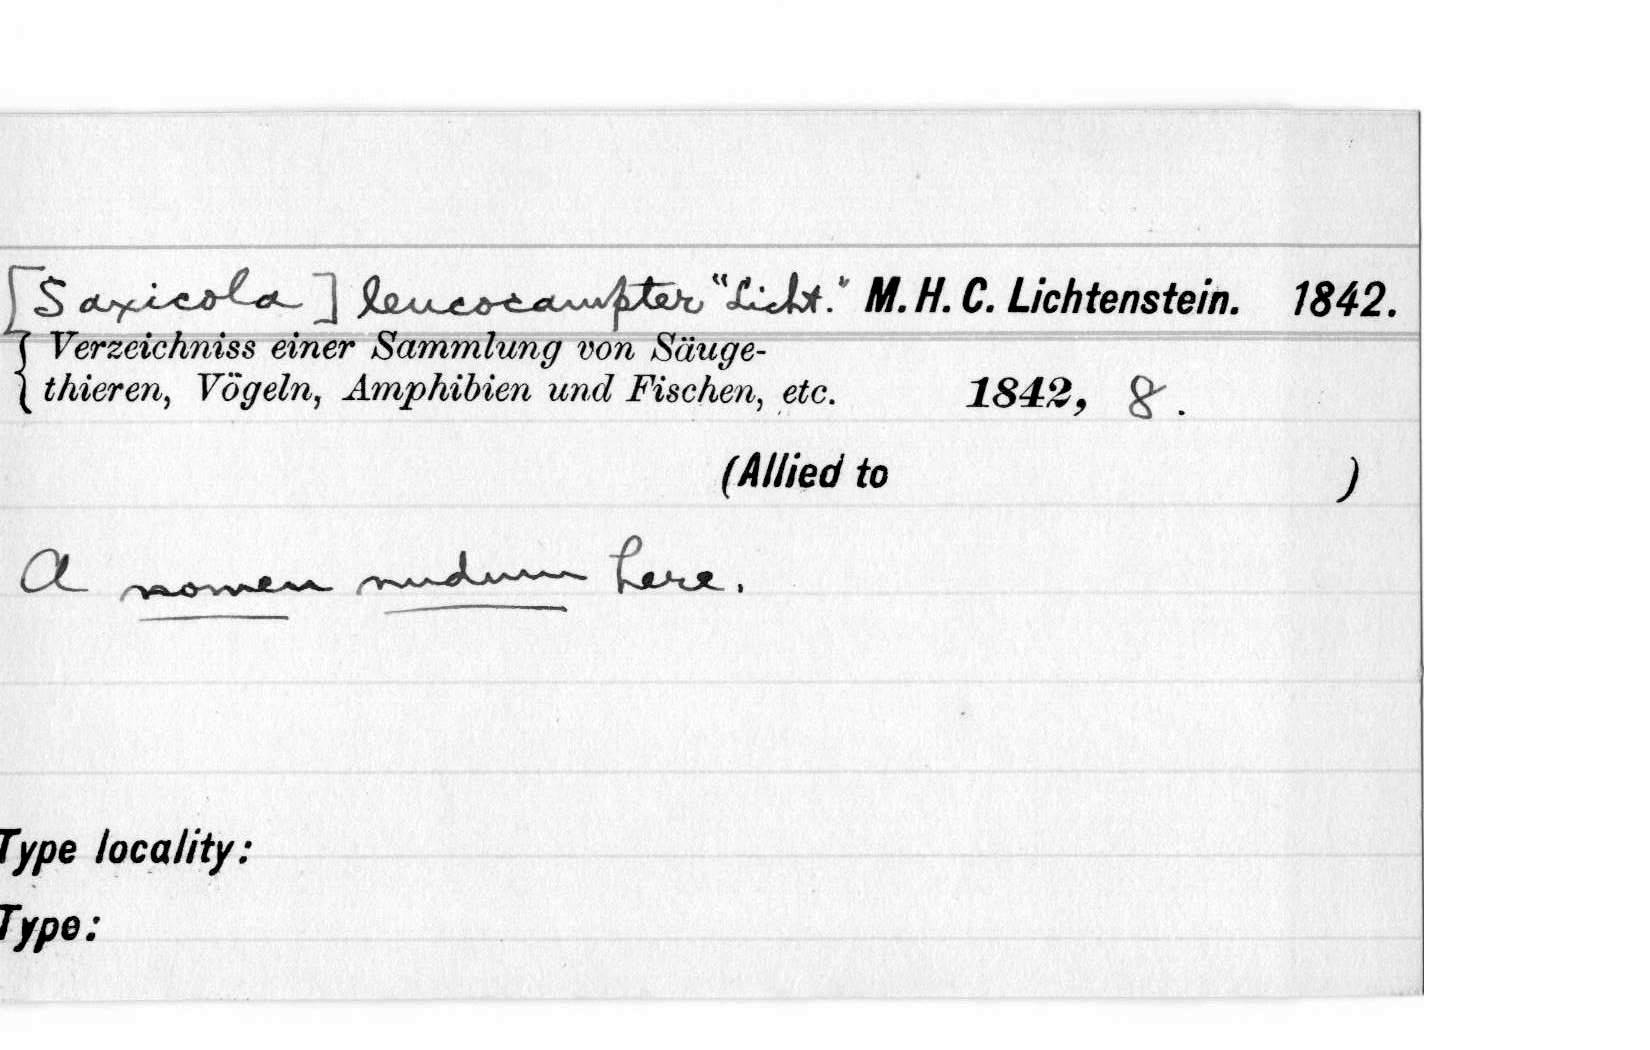 [Saxicola] leucocampter "Licht." M. H. C. Lichtenstein. 1842.
Verzeichniss einer Sammlung von Säuge-
thieren, Vögeln, Amphibien und Fischen, etc. 1842, 8.
(Allied to )
A nomen nudum here.
Type locality:
Type: